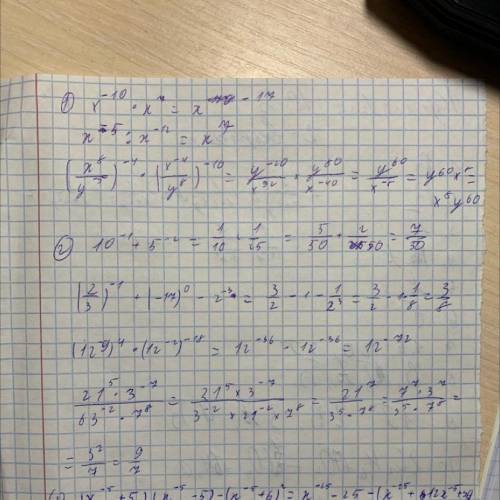 1) x⁻¹⁰ · x⁷ = x⁻¹⁷
x⁻⁵ : x⁻¹² = x⁷
(x⁸/y⁻⁵)⁻⁴ · (x⁻⁴/y⁸)⁻¹⁰ = y⁻²⁰/x³² · y⁸⁰/x⁻⁴⁰ = y⁶⁰/x⁻⁸ = y⁶⁰x⁸ =
x⁸y⁶⁰
2) 10⁻¹ + 5⁻² = 1/10 + 1/25 = 5/50 + 2/50 = 7/50
(2/3)⁻¹ + (-17)⁰ - 2⁻³ = 3/2 - 1 - 1/2³ = 3/2 - 1 - 1/8 = 3/8
(12⁻⁹)⁴ · (12⁻²)⁻¹⁸ = 12⁻³⁶ · 12⁻³⁶ = 12⁻⁷²
21⁵ · 3⁻⁷ / 63⁻² · 7⁸ = 21⁵ × 3⁻⁷ / 3⁻² × 21⁻² × 7⁸ = 21⁷ / 3⁵ · 7⁸ = 7⁷ · 3⁷ / 3⁵ · 7⁸ =
= 3²/7 = 9/7